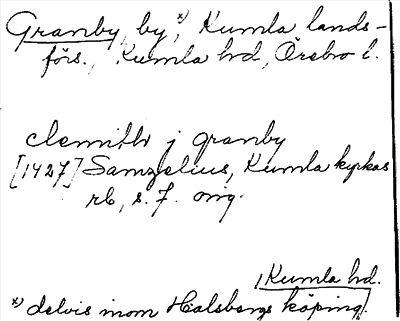 Granby, by*), Kumla lands-
förs., Kumla hd, Örebro l.
clemith j granby
[1427] Samzelius, Kumla kyrkas
rb, s. 7. orig.
Kumla hd.
*) delvis inom Halsbergs köping.